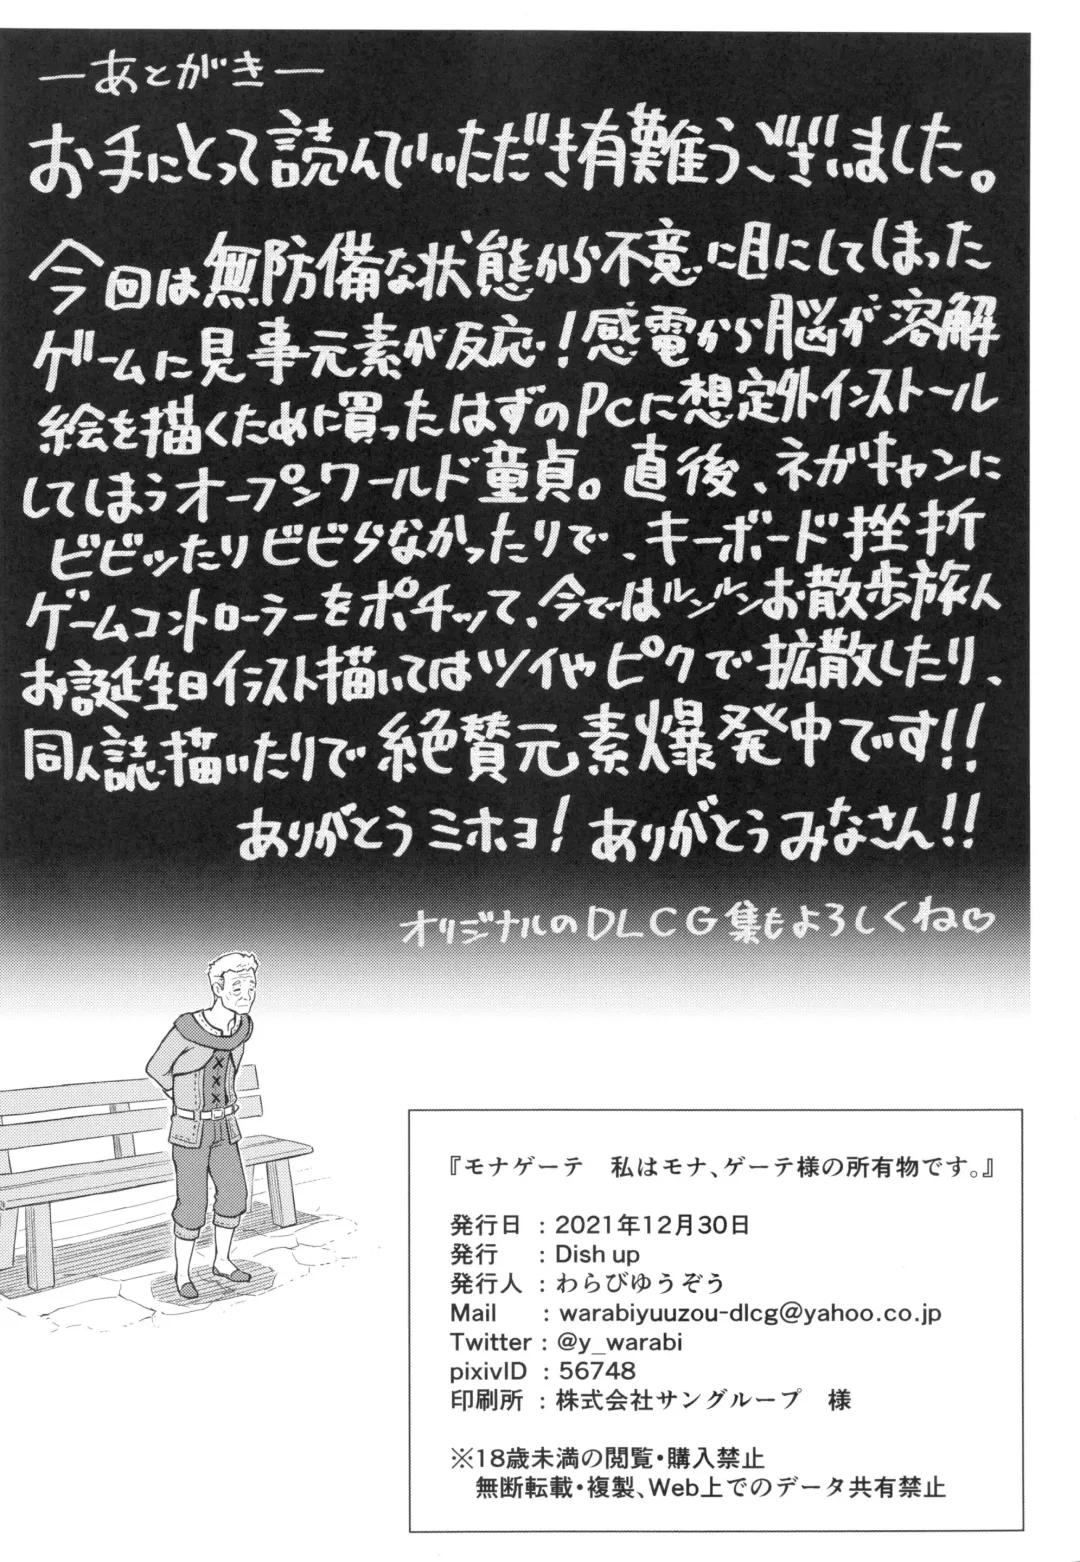 ―あとがき―
お手にとって読んでいただき有難うございました。
今回は無防備な状態から不意に目にしてしまった
ゲームに見事元素が反応!感電から脳が溶解
絵を描くために買ったはずのPcに想定外インストール
してしまうオープンワールド童貞。直後、ネガキャンに
ビビッたりビビらなかったりで、キーボード挫折
ゲームコントローラーをポチッて、今ではルンルンお散歩旅人
お誕生日イラスト描いてはツイやピクで拡散したり、
同人誌描いたりで絶賛元素爆発中です!!
ありがとうミホヨ!ありがとうみなさん!!
オリジナルのDLCG集もよろしくね♡
『モナゲーテ　私はモナ、ゲーテ様の所有物です。』
発行日 : 2021年12月30日
発行 : Dish up
発行人 : わらびゆうぞう
Mail : warabiyuuzou-dlcg@yahoo.co.jp
Twitter : @y_warabi
pixivID : 56748
印刷所 : 株式会社サングループ　様
※18歳未満の閲覧・購入禁止
無断転載・複製、Web上でのデータ共有禁止